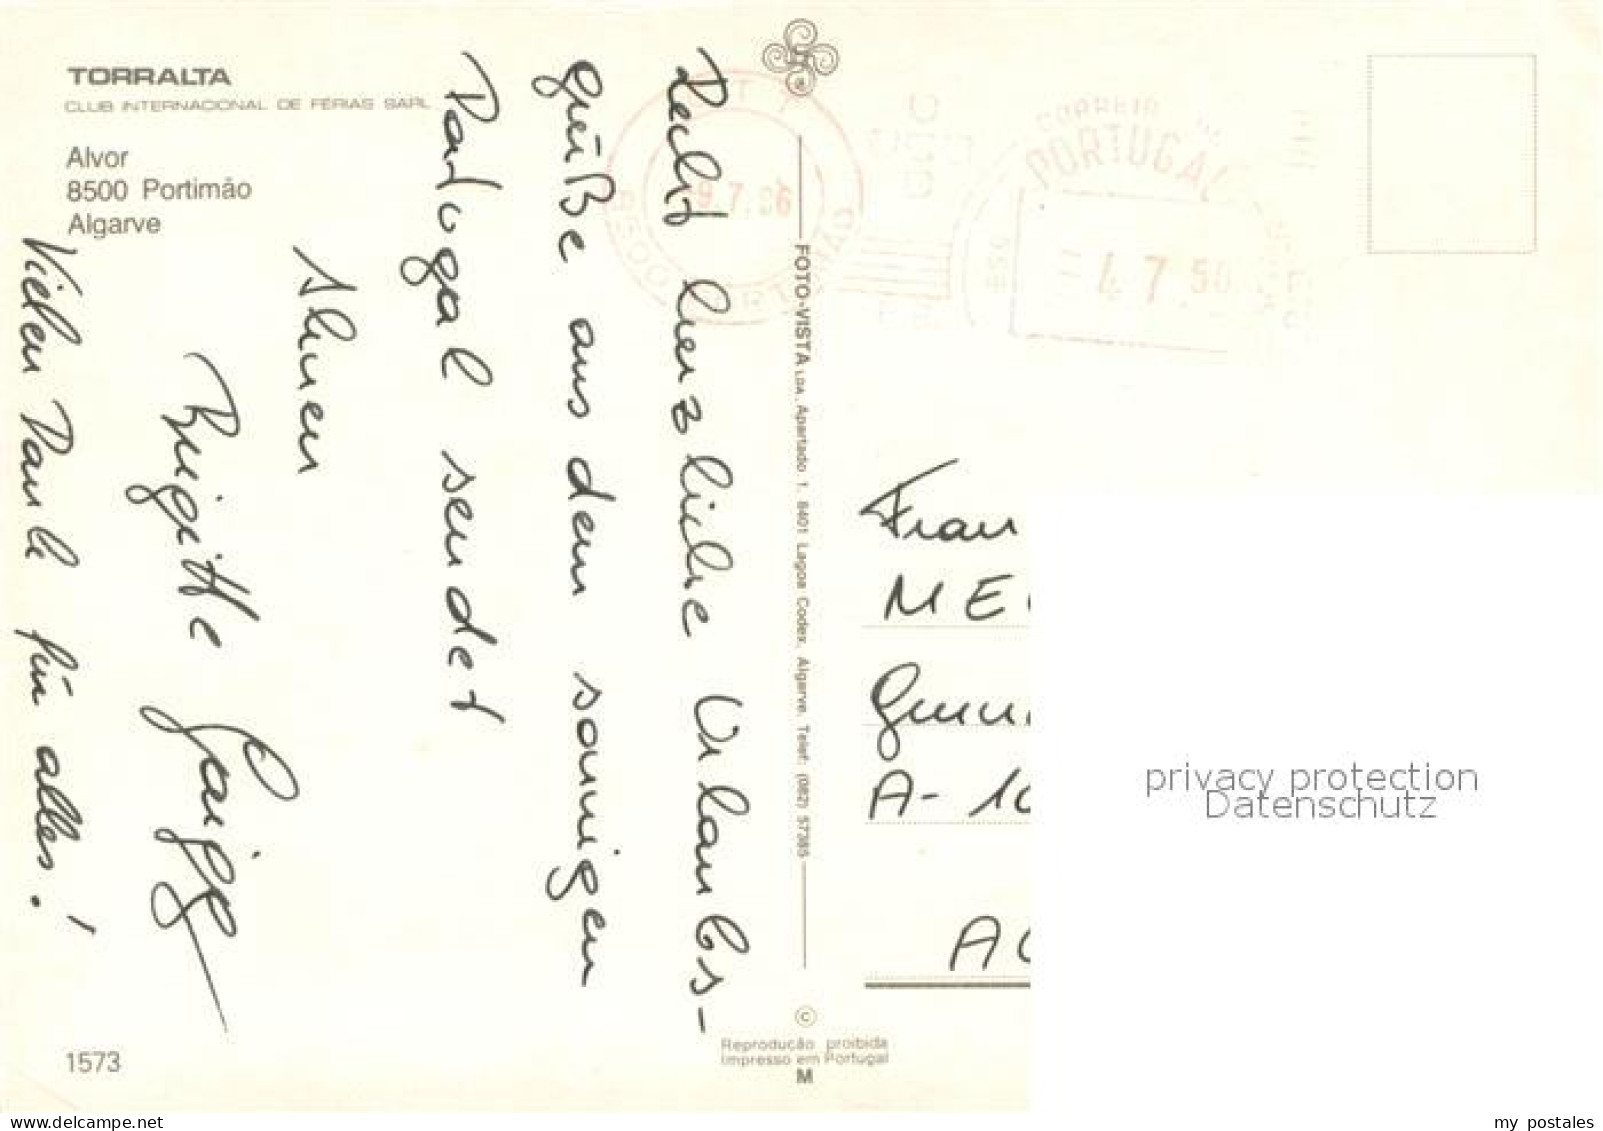 TORRALTA
CLUB INTERNACIONAL DE FÉRIAS SARL
Alvor
8500 Portimão
Algarve
Recht herzliche Urlaubs-
grüße aus dem sonnigen
Portugal sendet
Ihnen
Brigitte
Vielen Dank für alles!
1573
FOTO-VISTA LDA. Apartado 1. 8401 Lagoa Codex. Algarve. Telef: (082) 57385
©
Reprodução proibida
Impresso em Portugal
M
8500 PORTIMÃO
9.7.86
CORREIO DE
PORTUGAL
ESC
4 7 50
Frau
ME
A-10
privacy protection
Datenschutz
www.delcampe.net
my_postales